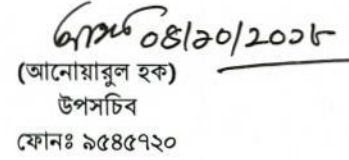 ০৪/১০/২০১৮
(আনোয়ারুল হক)
উপসচিব
ফোনঃ ৯৫৪৫৭২০